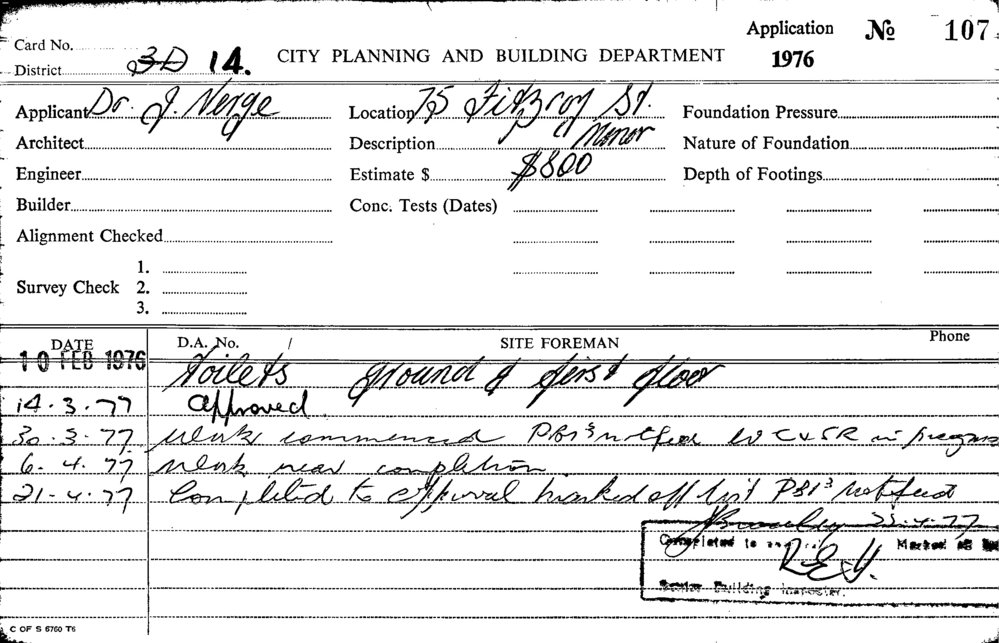 Card No.
District 3D 14.
CITY PLANNING AND BUILDING DEPARTMENT
Application № 107
1976
Applicant Dr. J. Nerge Location 75 Fitzroy St. Foundation Pressure
Architect Description Minor Nature of Foundation
Engineer Estimate $ $800 Depth of Footings
Builder Conc. Tests (Dates)
Alignment Checked
1.
Survey Check 2.
3.
DATE D.A. No. / SITE FOREMAN Phone
10 FEB 1976 Toilets ground & first floor
14.3.77 Approved.
30.3.77 Work commenced notified in progress
6.4.77 Work near completion
21-4-77 Completed to approval marked off list notified
22.4.77
Completed to Marked off
R.E.Y.
Senior Building Inspector.
C OF S 6760 T6